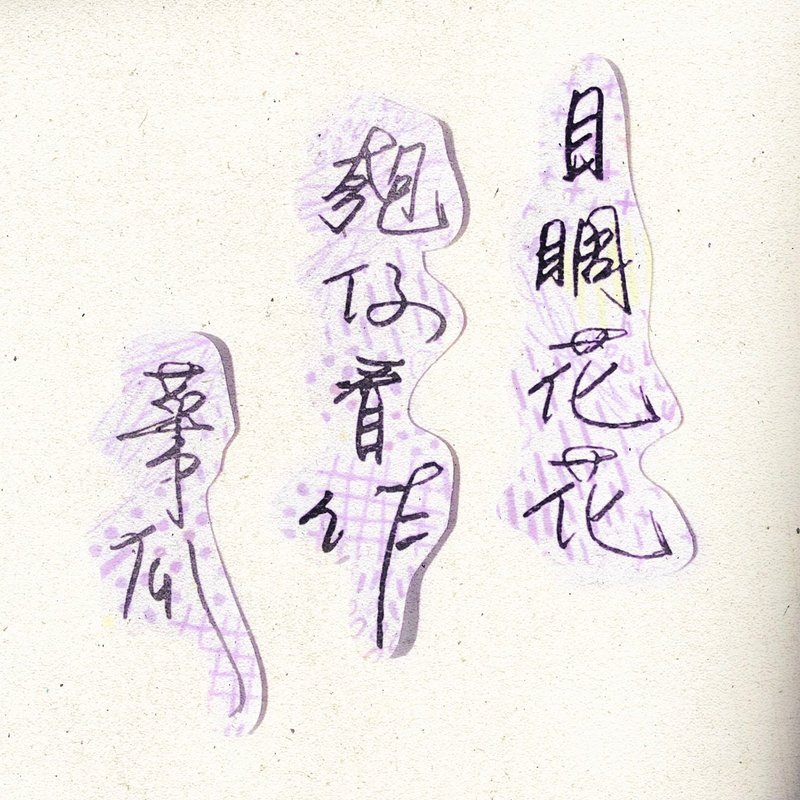 目睭花花
匏仔看作
菜瓜